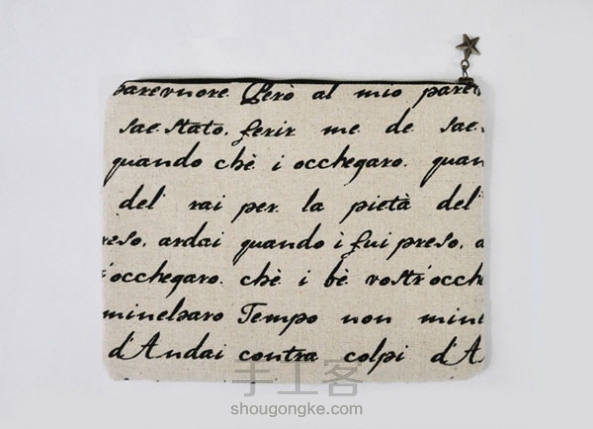 parevnore. Però al mio pare
sae. Stato, ferir me de sae.
quando chè i occhegaro. quan
del rai per la pietà del
reso, ardai quando i fui preso, a
i'occhegaro. chè i bè vostr'occh
minelsaro Tempo non mine
d'Andai contra colpi d'A
手工客
shougongke.com